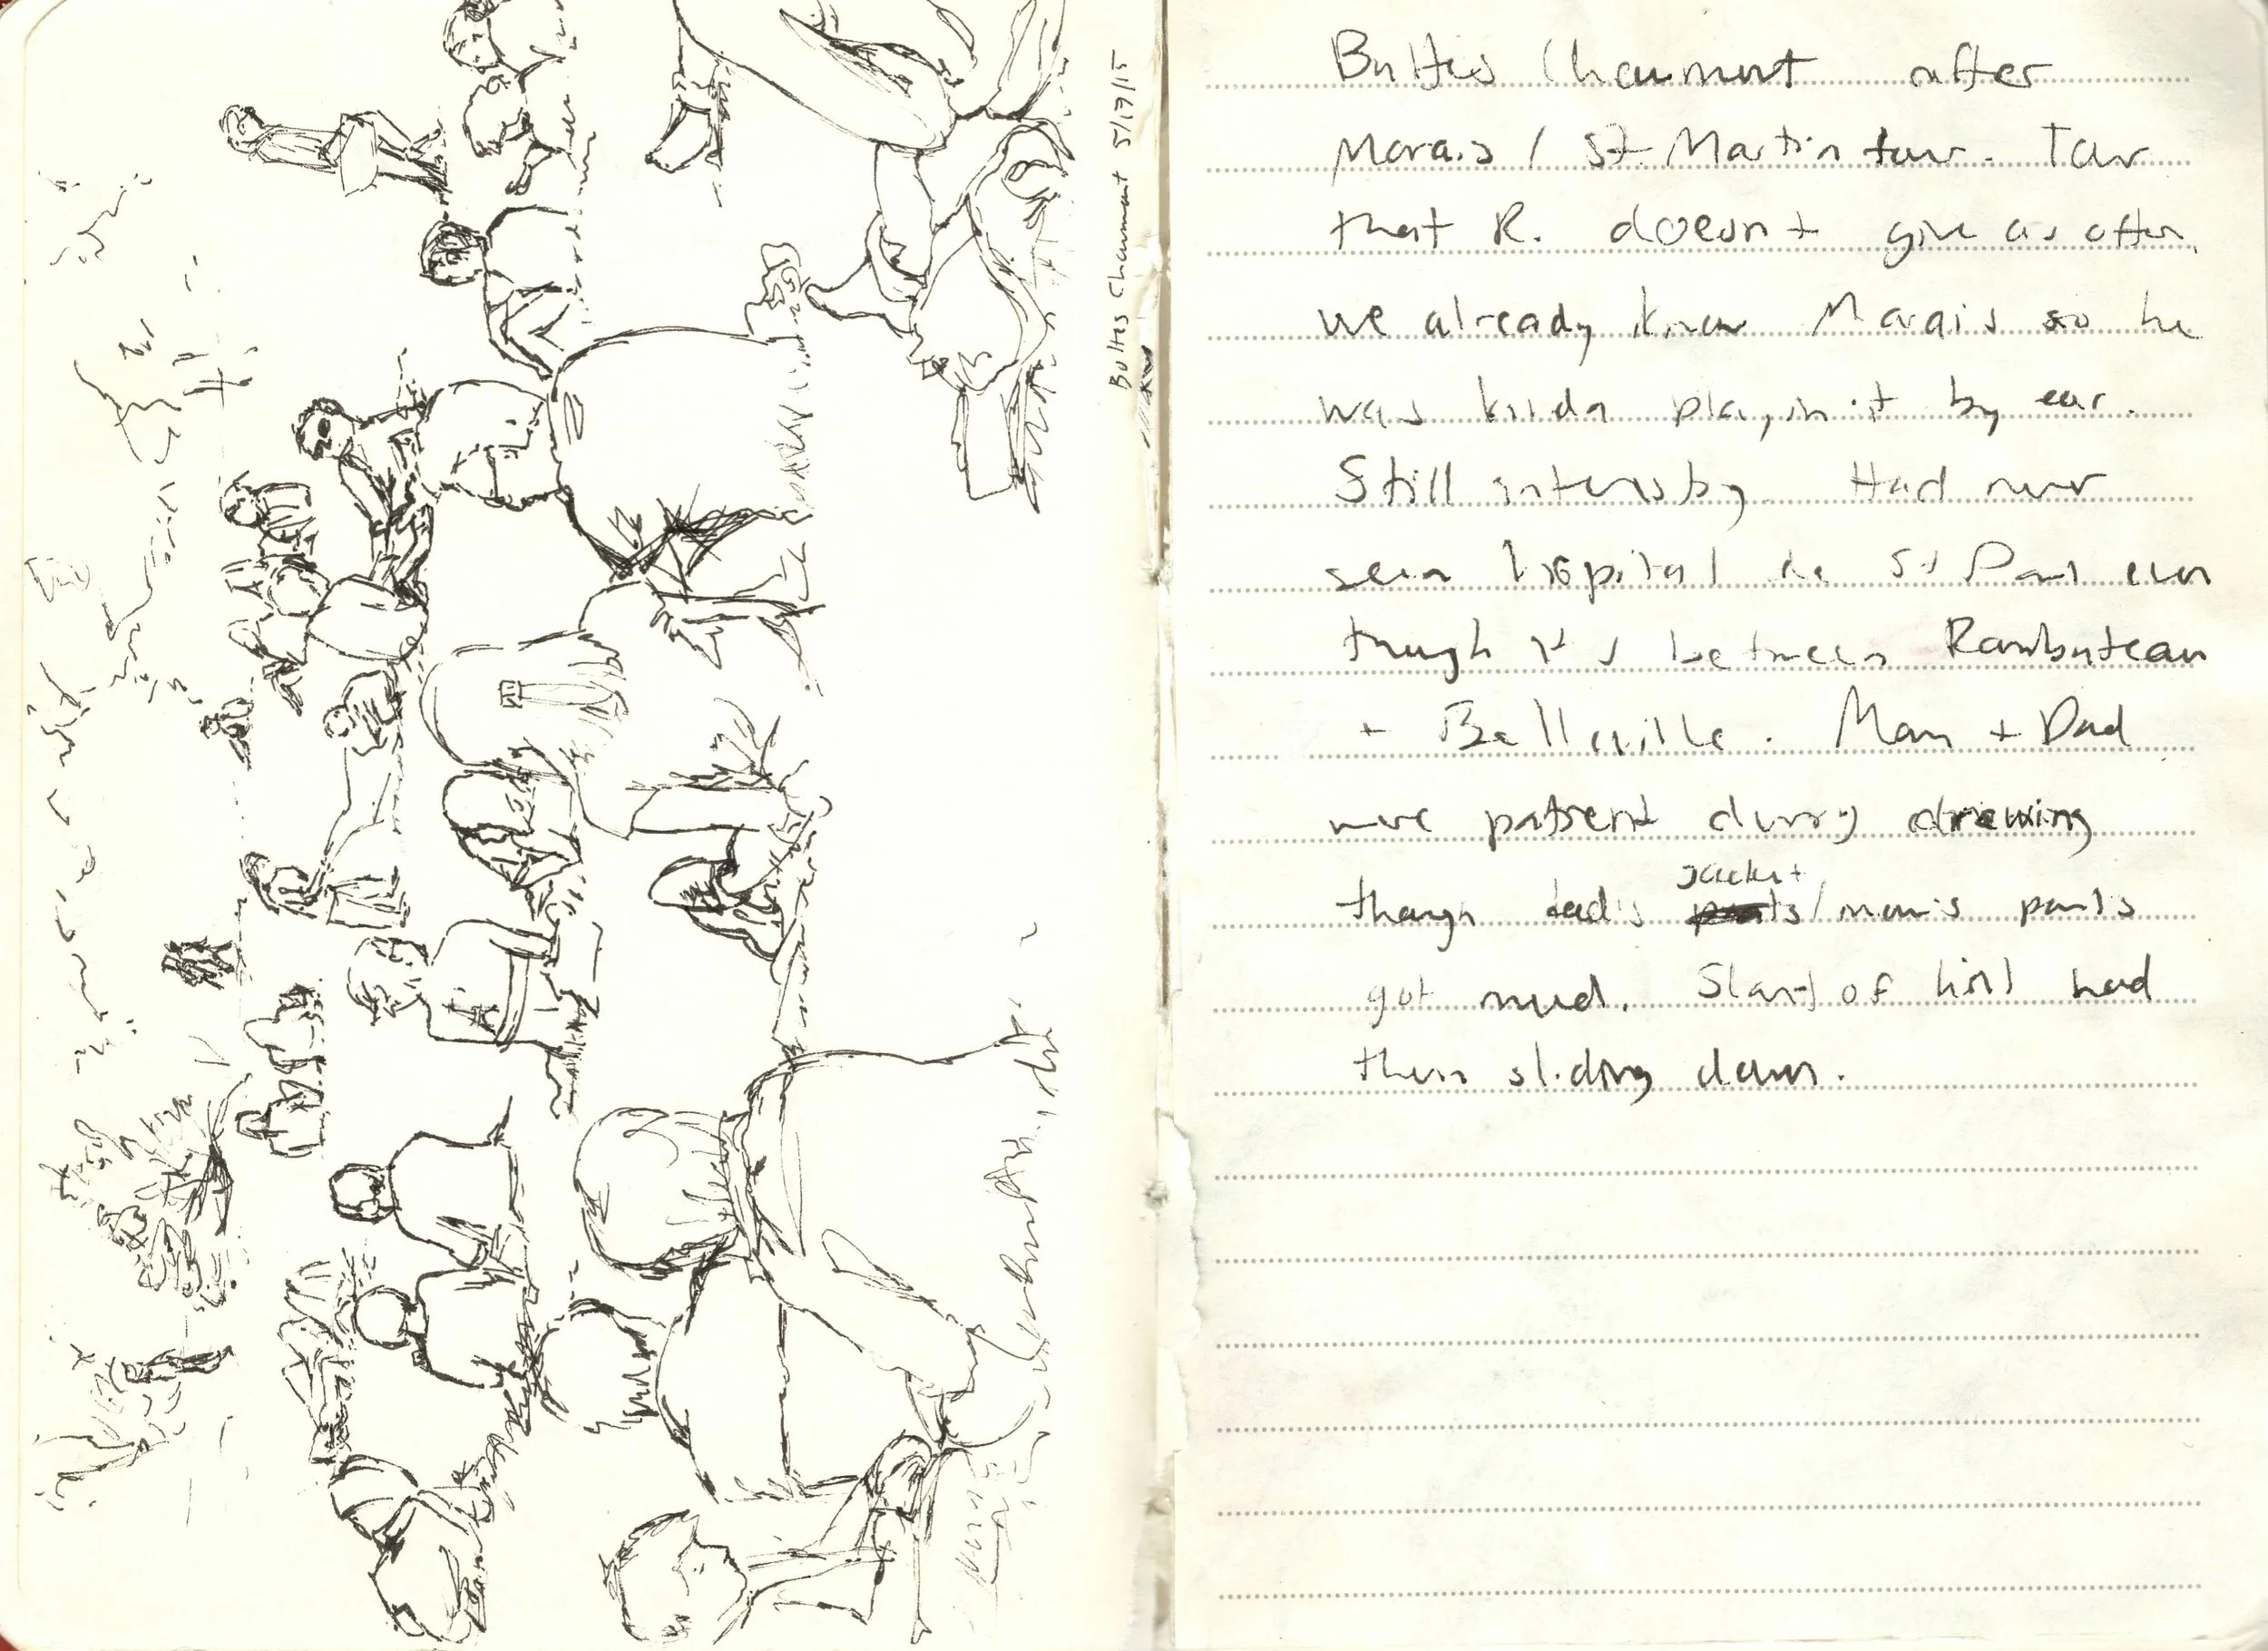 Buttes Chaumont 5/17/15
Buttes Chaumont after
Marais / St. Martin tour. Tour
that R. doesn't give as often.
we already know Marais so he
was kinda playin it by ear.
Still interesting. Had never
seen hopital de St Paul even
though it's between Rambuteau
+ Belleville. Mom + Dad
more patient during drawing
jacket
though dad's pants/mom's pants
got mud. Slant of hill had
them sliding down.